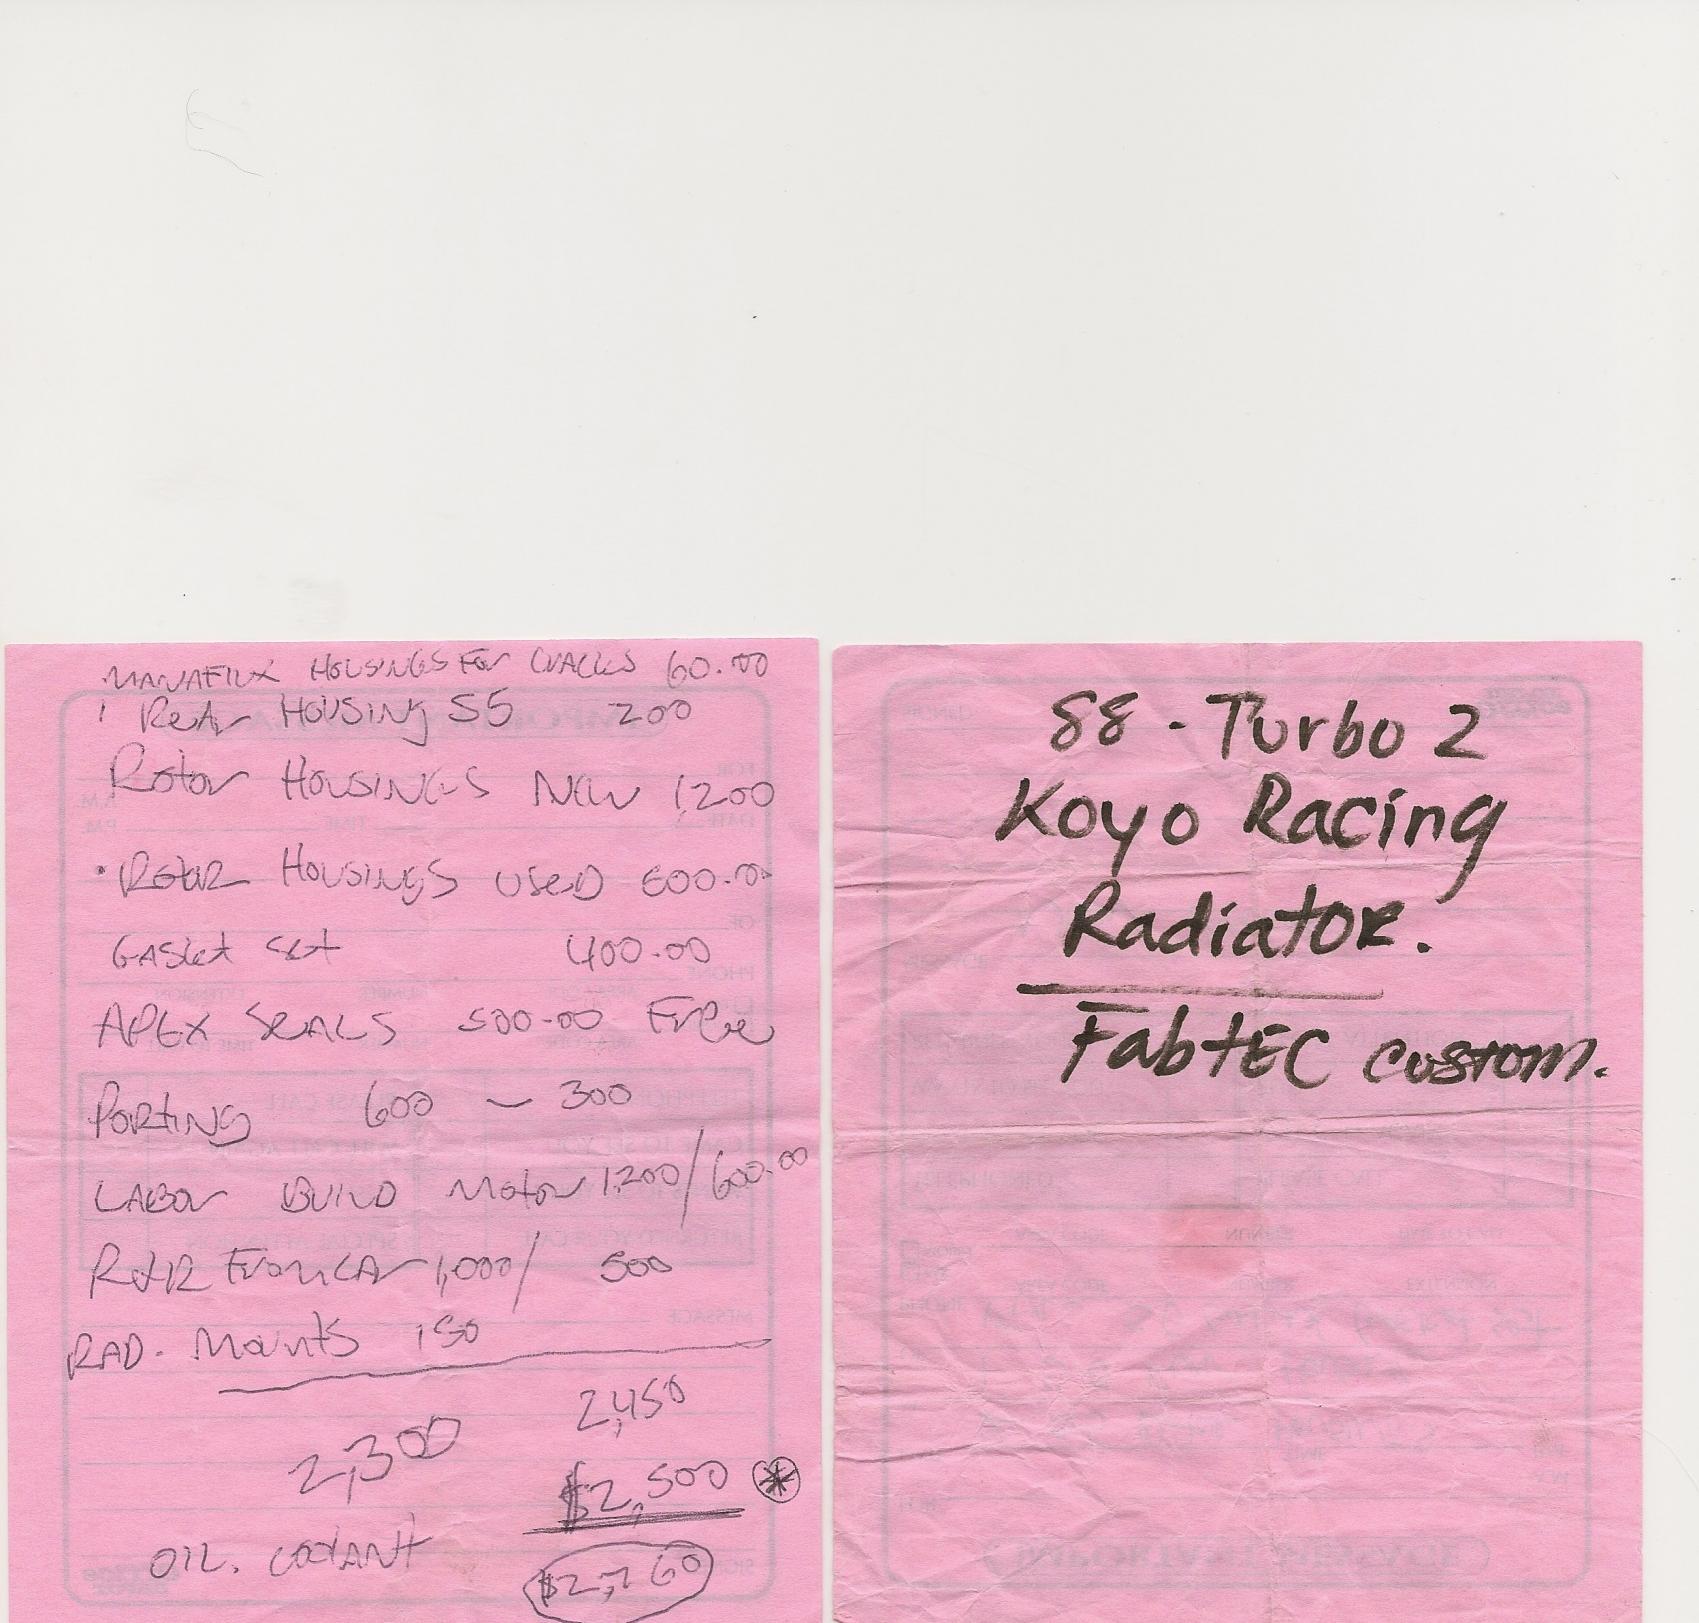 MANAFLUX HOUSINGS FOR CRACKS 60.00
Rear HOUSING S5 200
Rotor HOUSINGS New 1,200
• Rotor HOUSINGS USED 600.00
GASket set 400.00
APEX SEALS 500.00 Free
Porting 600 ~ 300
LABOR BUILD Motor 1,200/600.00
R&R From CAr 1,000/ 500
RAD. Mounts 150
2,450
2,300
$2,500 *
OIL. COOLANT
$2,760
88 - Turbo 2
Koyo Racing
Radiator.
FabtEC custom.